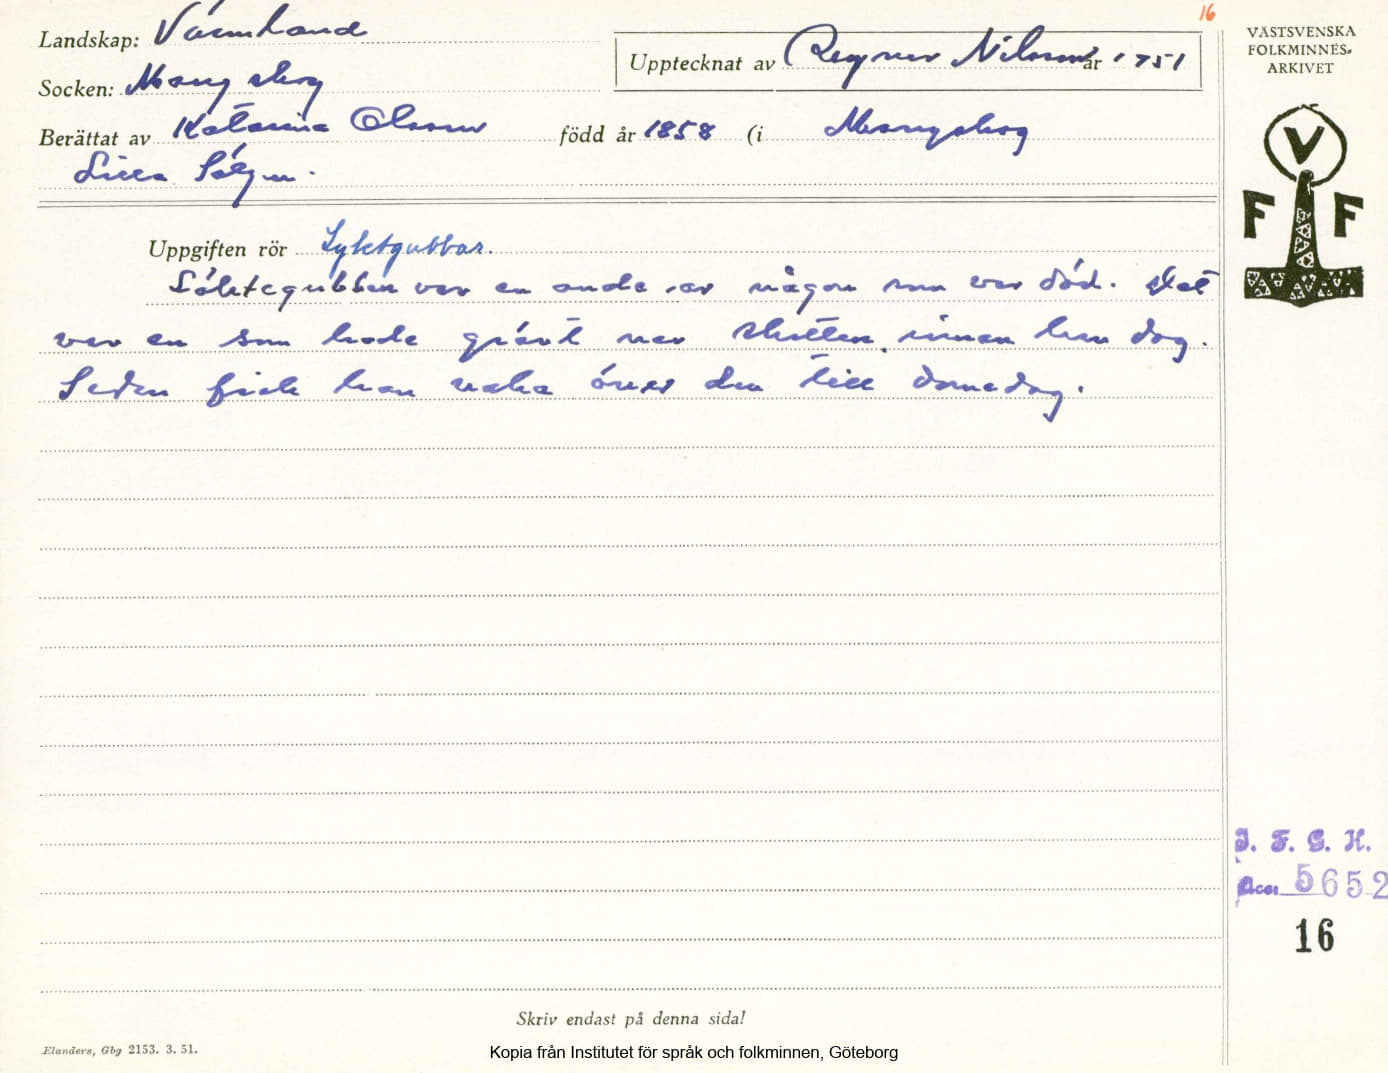 16
Landskap: Värmland
Upptecknat av Regner Nilsson år 1951
Socken: Mangskog
Berättat av Katarina Olsson född år 1858 (i Mangskog
Lilla Sälgen.
Uppgiften rör Lyktgubbar.
Löktegubben var en ande av någon som var död. Det
var en som hade grävt ner skatten innan han dog.
Sedan fick han vaka över den till domedag.
Skriv endast på denna sida!
Elanders, Gbg 2153. 3. 51.
Kopia från Institutet för språk och folkminnen, Göteborg
VÄSTSVENSKA
FOLKMINNES-
ARKIVET
V
F F
I. F. G. H.
Acc. 5652
16